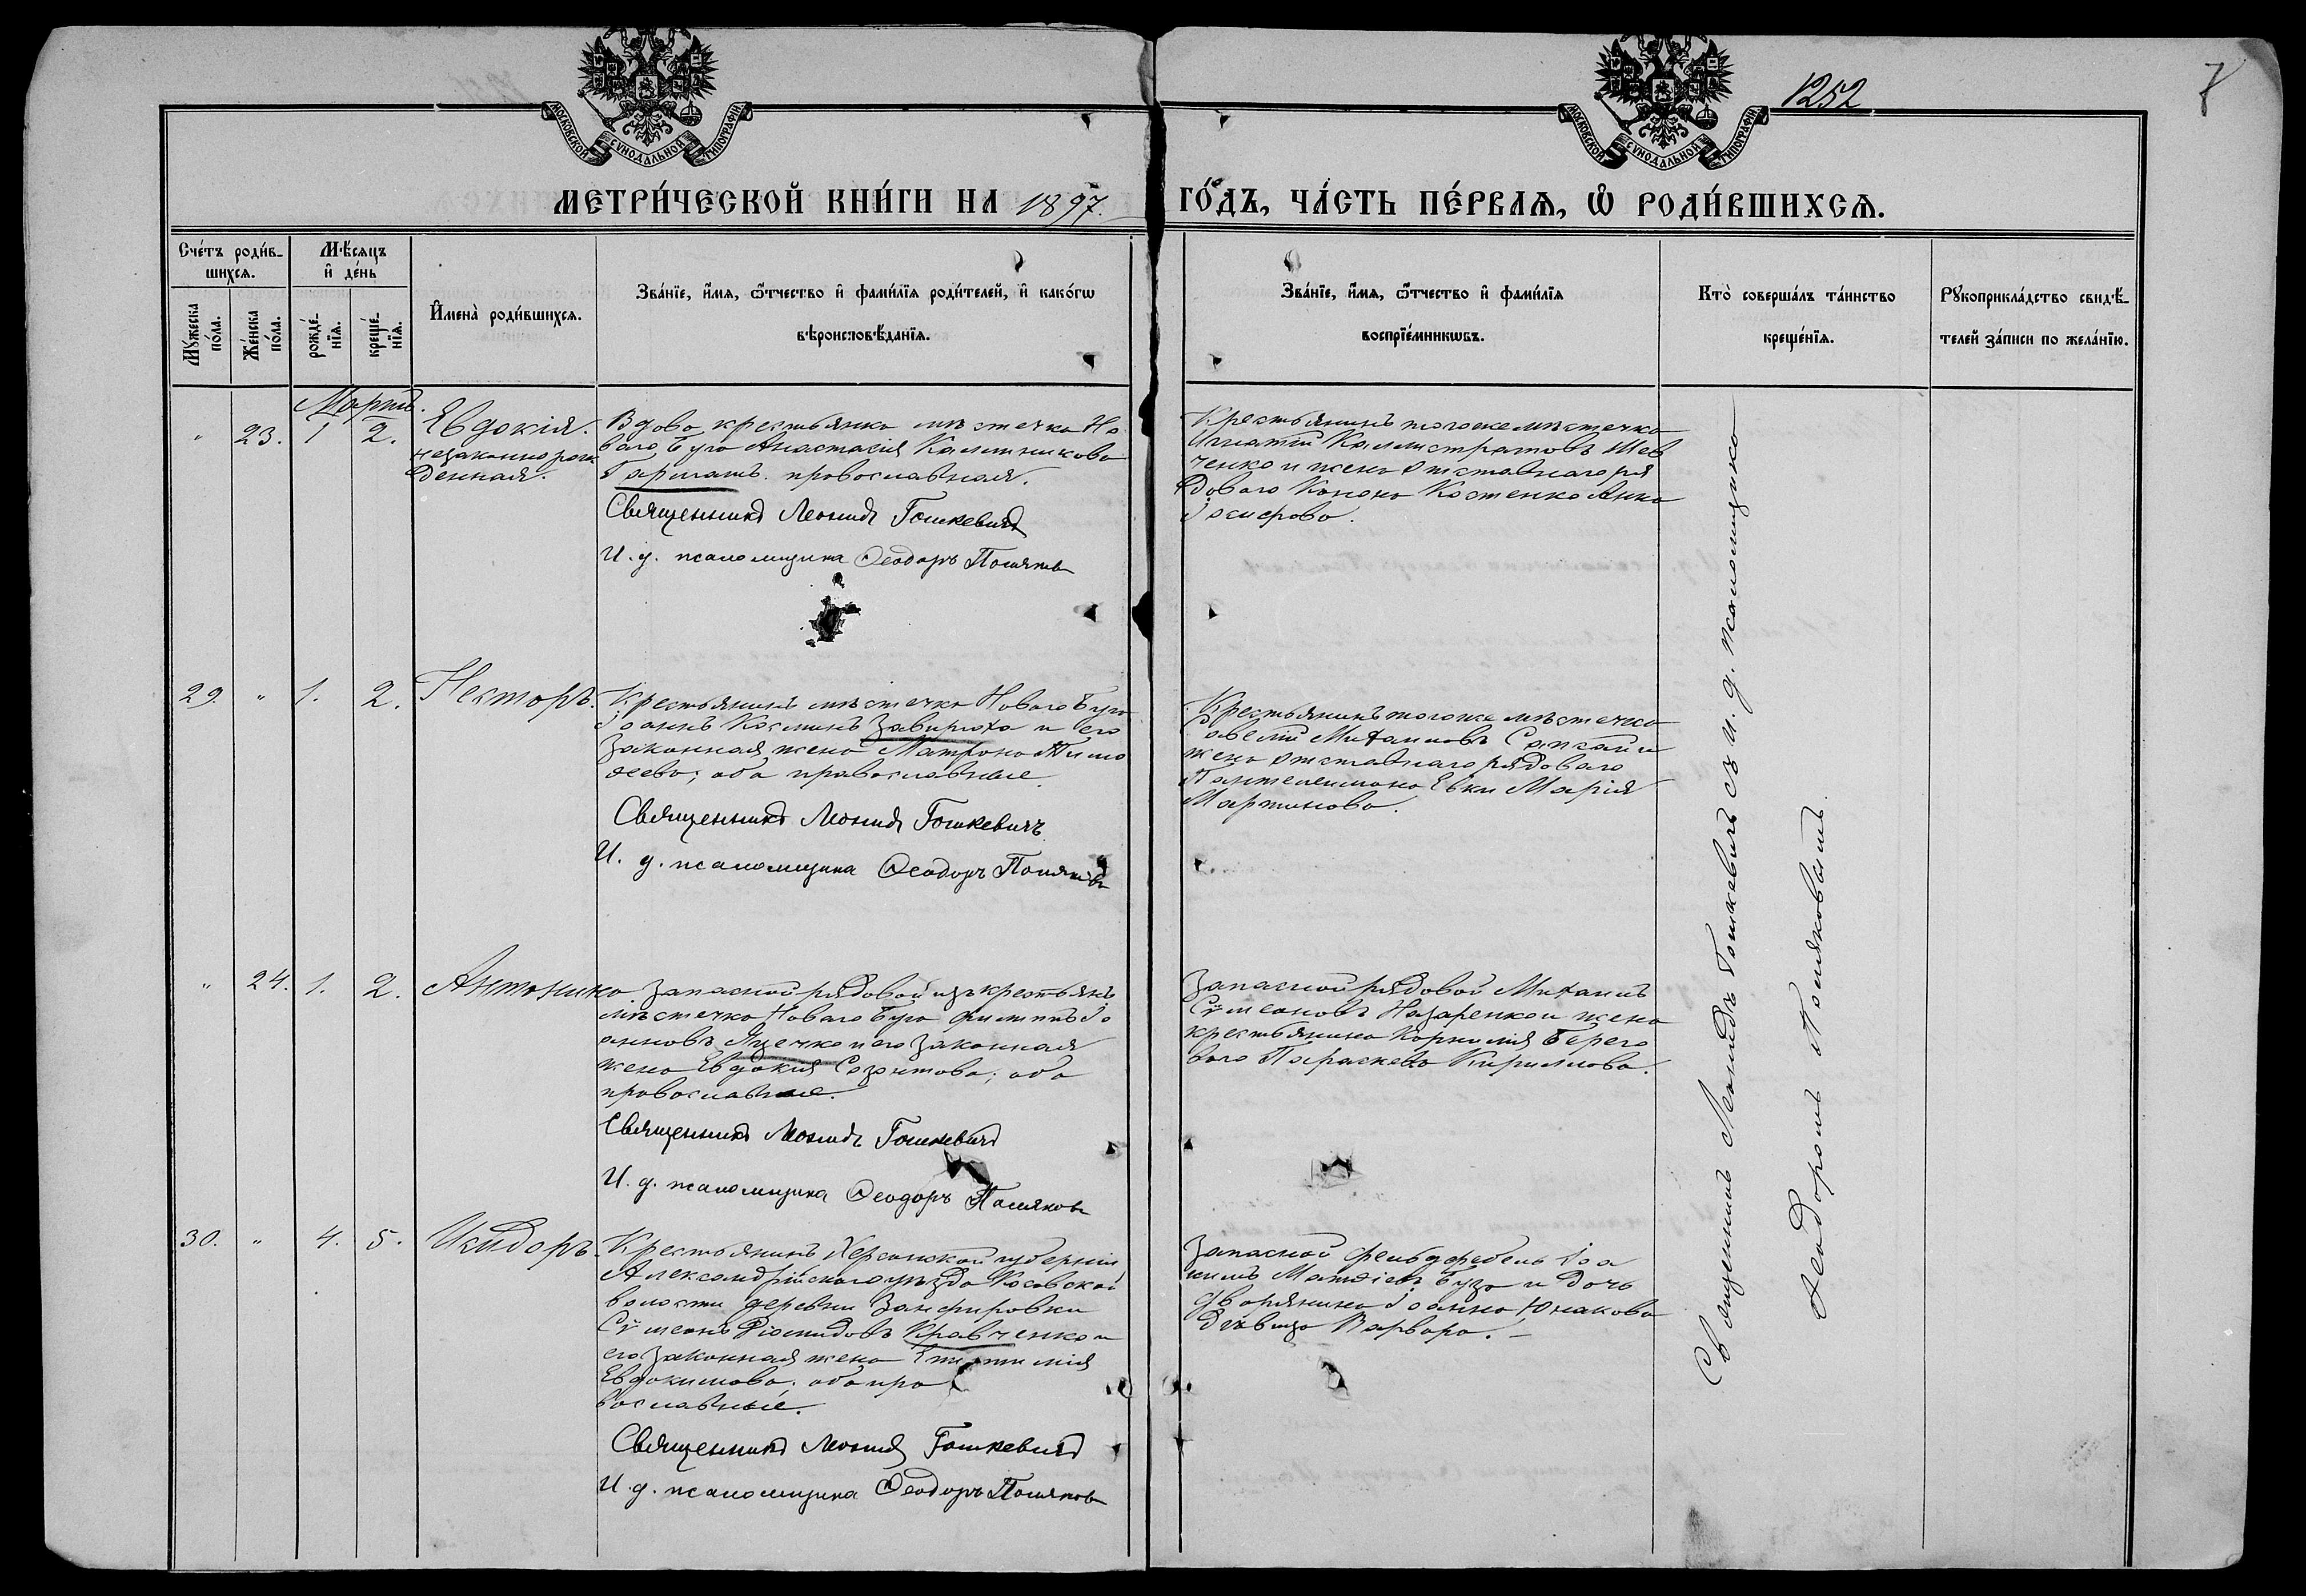 1252
7
МОСКОВСКОЙ СѴНОДАЛЬНОЙ ТИПОГРАФІИ
МОСКОВСКОЙ СѴНОДАЛЬНОЙ ТИПОГРАФІИ
МЕТРИ́ЧЕСКОЙ КНИ́ГИ НА 1897. ГО́ДЪ, ЧА́СТЬ ПЕ́РВАѦ, Ѡ҆ РОДИ́ВШИХСѦ.
Сче́тъ роди́в-
шихсѧ.
Мꙋ́жеска по́ла.
Же́нска по́ла.
Мѣ́сѧцъ
и҆ де́нь
рожде́-нїѧ.
креще́-нїѧ.
И҆мена̀ роди́вшихсѧ.
Зва́нїе, и҆́мѧ, ѻ҆́тчество и҆ фами́лїѧ роди́телей, и҆ како́гѡ
вѣроисповѣ́данїѧ.
Зва́нїе, и҆́мѧ, ѻ҆́тчество и҆ фами́лїѧ
воспрїе́мникѡвъ.
Кто̀ соверша́лъ та́инство
креще́нїѧ.
Рꙋкоприкла́дство свидѣ́-
телей за́писи по жела́нїю.
Мартъ.
" 23. 1 2. Евдокія.
незаконнорож
денная.
Вдова крестьянка мѣстечка Но
ваго Буга Анастасія Каллиникова
Гармашъ. православная.
Священникъ Леонидъ Гошкевичъ
И. д. псаломщика Ѳеодоръ Поляковъ
Крестьянинъ тогоже мѣстечка
Игнатій Каллистратовъ Шев
ченко и жена отставнаго ря
доваго Конона Костенко Анна
Іосифова.
29. " 1. 2. Несторъ.
Крестьянинъ мѣстечка Новаго Буга
Іоаннъ Косминъ Завирюха и его
законная жена Матрона Тимо
ѳеева; оба православные.
Священникъ Леонидъ Гошкевичъ
И. д. псаломщика Ѳеодоръ Поляковъ
Крестьянинъ тогоже мѣстечка
Савелій Михаиловъ и
жена отставнаго рядоваго
Пантелеимона Евки Марія
Мартинова.
" 24. 1. 2. Антонина.
Запасной рядовой изъ крестьянъ
мѣстечка Новаго Буга Филиппъ Іо
анновъ Яценко и его законная
жена Евдокія Созонтова; оба
православные.
Священникъ Леонидъ Гошкевичъ
И. д. псаломщика Ѳеодоръ Поляковъ
Запасной рядовой Михаилъ
Сѵмеоновъ Назаренко и жена
крестьянина Корнилія Берего
ваго Параскева Кириллова.
30. " 4. 5. Исидоръ.
Крестьянинъ Херсонской губерніи
Александрійскаго уѣзда Косовской
волости деревни Занфировки
Сѵмеонъ Діомидовъ Кравченко и
его законная жена
Евдокимова; оба пра
вославные.
Священникъ Леонидъ Гошкевичъ
И. д. псаломщика Ѳеодоръ Поляковъ
Запасной фельдфебель Іоа
кимъ Матѳіевъ Буза и дочь
дворянина Іоанна Юнакова
дѣвица Варвара.
Священникъ Леонидъ Гошкевичъ съ и. д. псаломщика
Ѳеодоромъ Поляковымъ.